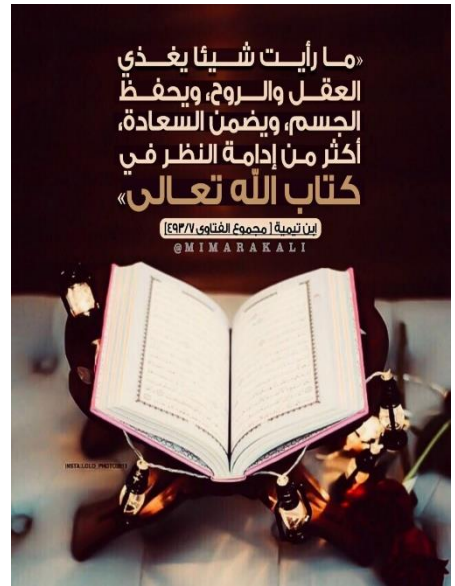 «ما رأيت شيئا يغذي
العقل والروح، ويحفظ
الجسم، ويضمن السعادة،
أكثر من إدامة النظر في
كتاب الله تعالى»
إبن تيمية [ مجموع الفتاوى ٤٩٣/٧]
@MIMARAKALI